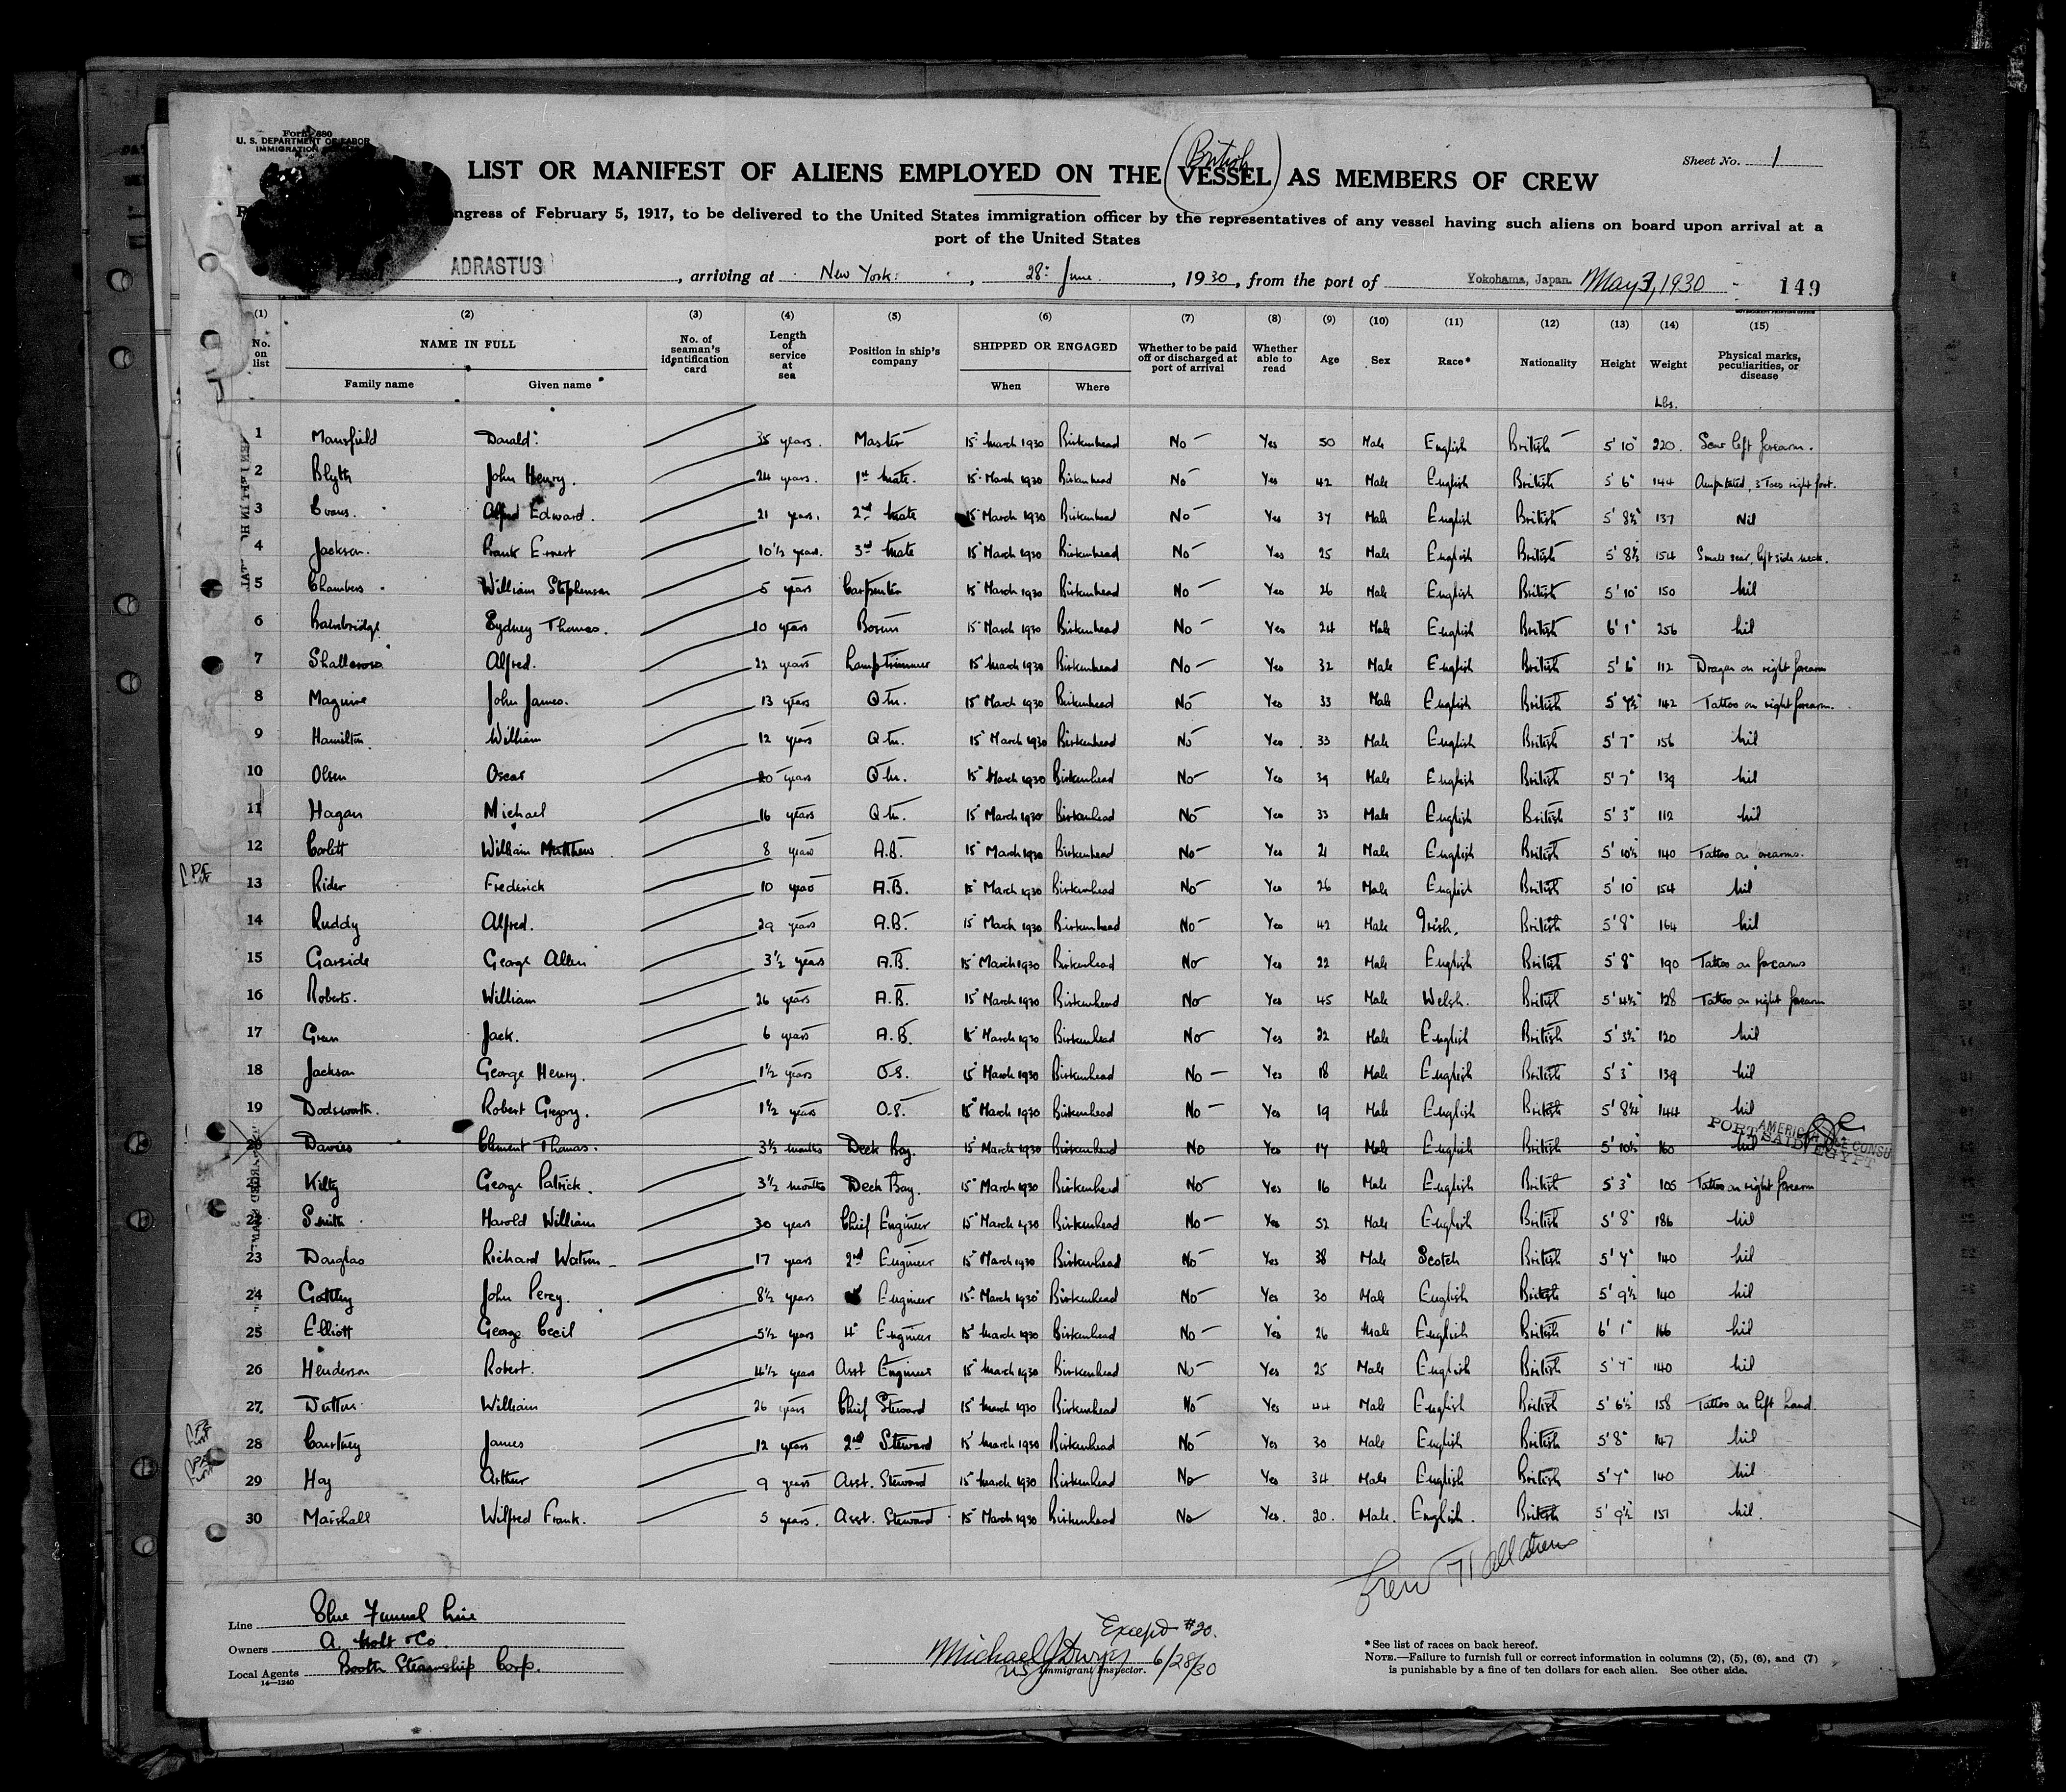 Form 680
U. S. DEPARTMENT OF LABOR
IMMIGRATION
Sheet No. 1
LIST OR MANIFEST OF ALIENS EMPLOYED ON THE (British VESSEL) AS MEMBERS OF CREW
ngress of February 5, 1917, to be delivered to the United States immigration officer by the representatives of any vessel having such aliens on board upon arrival at a
port of the United States
ADRASTUS, arriving at New York, 28 June, 1930, from the port of Yokohama, Japan. May 7, 1930 149
(1) (2) (3) (4) (5) (6) (7) (8) (9) (10) (11) (12) (13) (14) (15)
No. on list NAME IN FULL Family name Given name No. of seaman's identification card Length of service at sea Position in ship's company SHIPPED OR ENGAGED When Where Whether to be paid off or discharged at port of arrival Whether able to read Age Sex Race* Nationality Height Weight Physical marks, peculiarities, or disease
Lbs.
1 Mansfield Donald 35 years. Master 15 March 1930 Birkenhead No Yes 50 Male English British 5' 10" 220. Scar left forearm.
2 Blyth John Henry. 24 years. 1st Mate. 15 March 1930 Birkenhead No Yes 42 Male English British 5' 6" 144 Amputated, 3 Toes right foot.
3 Evans. Alfred Edward. 21 years. 2nd Mate 15 March 1930 Birkenhead No Yes 37 Male English British 5' 8½" 137 Nil
4 Jackson. Frank Ernest 10½ years. 3rd Mate 15 March 1930 Birkenhead No Yes 25 Male English British 5' 8½" 154 Small scar, left side neck.
5 Chambers William Stephenson 5 years Carpenter 15 March 1930 Birkenhead No Yes 26 Male English British 5' 10" 150 Nil
6 Bainbridge Sydney Thomas. 10 years Bosun 15 March 1930 Birkenhead No Yes 24 Male English British 6' 1" 256 Nil
7 Shallcross Alfred. 22 years Lamptrimmer 15 March 1930 Birkenhead No Yes 32 Male English British 5' 6" 112 Dragon on right forearm
8 Maguire John James. 13 years Q M. 15 March 1930 Birkenhead No Yes 33 Male English British 5' 7½" 142 Tattoo on right forearm.
9 Hamilton William 12 years Q M. 15 March 1930 Birkenhead No Yes 33 Male English British 5' 7" 156 Nil
10 Olsen Oscar 20 years Q M. 15 March 1930 Birkenhead No Yes 39 Male English British 5' 7" 139 Nil
11 Hagan Michael 16 years Q M. 15 March 1930 Birkenhead No Yes 33 Male English British 5' 3" 112 Nil
12 Corlett William Matthew 8 years A.B. 15 March 1930 Birkenhead No Yes 21 Male English British 5' 10½" 140 Tattoo on forearms.
13 Rider Frederick 10 years A.B. 15 March 1930 Birkenhead No Yes 26 Male English British 5' 10" 154 Nil
14 Ruddy Alfred. 29 years A.B. 15 March 1930 Birkenhead No Yes 42 Male Irish. British 5' 8" 164 Nil
15 Garside George Allen 3½ years A.B. 15 March 1930 Birkenhead No Yes 22 Male English British 5' 8" 190 Tattoo on forearms
16 Roberts. William 26 years A.B. 15 March 1930 Birkenhead No Yes 45 Male Welsh. British 5' 4½" 128 Tattoo on right forearm
17 Green Jack. 6 years A.B. 15 March 1930 Birkenhead No Yes 22 Male English British 5' 3½" 120 Nil
18 Jackson George Henry. 1½ years O.S. 15 March 1930 Birkenhead No Yes 18 Male English British 5' 3" 139 Nil
19 Dodsworth. Robert Gregory. 1½ years O.S. 15 March 1930 Birkenhead No Yes 19 Male English British 5' 8¼" 144 Nil
20 Davies Clement Thomas. 3½ months Deck Boy. 15 March 1930 Birkenhead No Yes 17 Male English British 5' 10½" 160 Nil
AMERICAN CONSU
PORT SAID EGYPT
21 Kilty George Patrick. 3½ months Deck Boy. 15 March 1930 Birkenhead No Yes 16 Male English British 5' 3" 105 Tattoo on right forearm
22 Smith Harold William 30 years Chief Engineer 15 March 1930 Birkenhead No Yes 52 Male English British 5' 8" 186 Nil
23 Douglas Richard Watson 17 years 2nd Engineer 15 March 1930 Birkenhead No Yes 38 Male Scotch British 5' 7" 140 Nil
24 John Percy. 8½ years Engineer 15 March 1930 Birkenhead No Yes 30 Male English British 5' 9½" 140 Nil
25 Elliott George Cecil 5½ years 4" Engineer 15 March 1930 Birkenhead No Yes 26 Male English British 6' 1" 166 Nil
26 Henderson Robert. 4½ years Asst Engineer 15 March 1930 Birkenhead No Yes 25 Male English British 5' 7" 140 Nil
27 Dutton William 26 years Chief Steward 15 March 1930 Birkenhead No Yes 44 Male English British 5' 6½" 158 Tattoo on left hand.
28 Courtney James 12 years 2nd Steward 15 March 1930 Birkenhead No Yes 30 Male English British 5' 8" 147 Nil
29 Hay Arthur 9 years Asst. Steward 15 March 1930 Birkenhead No Yes 34 Male English British 5' 7" 140 Nil
30 Marshall Wilfred Frank. 5 years. Asst. Steward 15 March 1930 Birkenhead No Yes. 20. Male. English. British 5' 9½" 151 Nil.
Line Blue Funnel Line
Owners A. Holt & Co.
Local Agents Booth Steamship Corp.
14—1240
Except #20.
Michael J Dwyer 6/28/30
US Immigrant Inspector.
*See list of races on back hereof.
NOTE.—Failure to furnish full or correct information in columns (2), (5), (6), and (7)
is punishable by a fine of ten dollars for each alien. See other side.